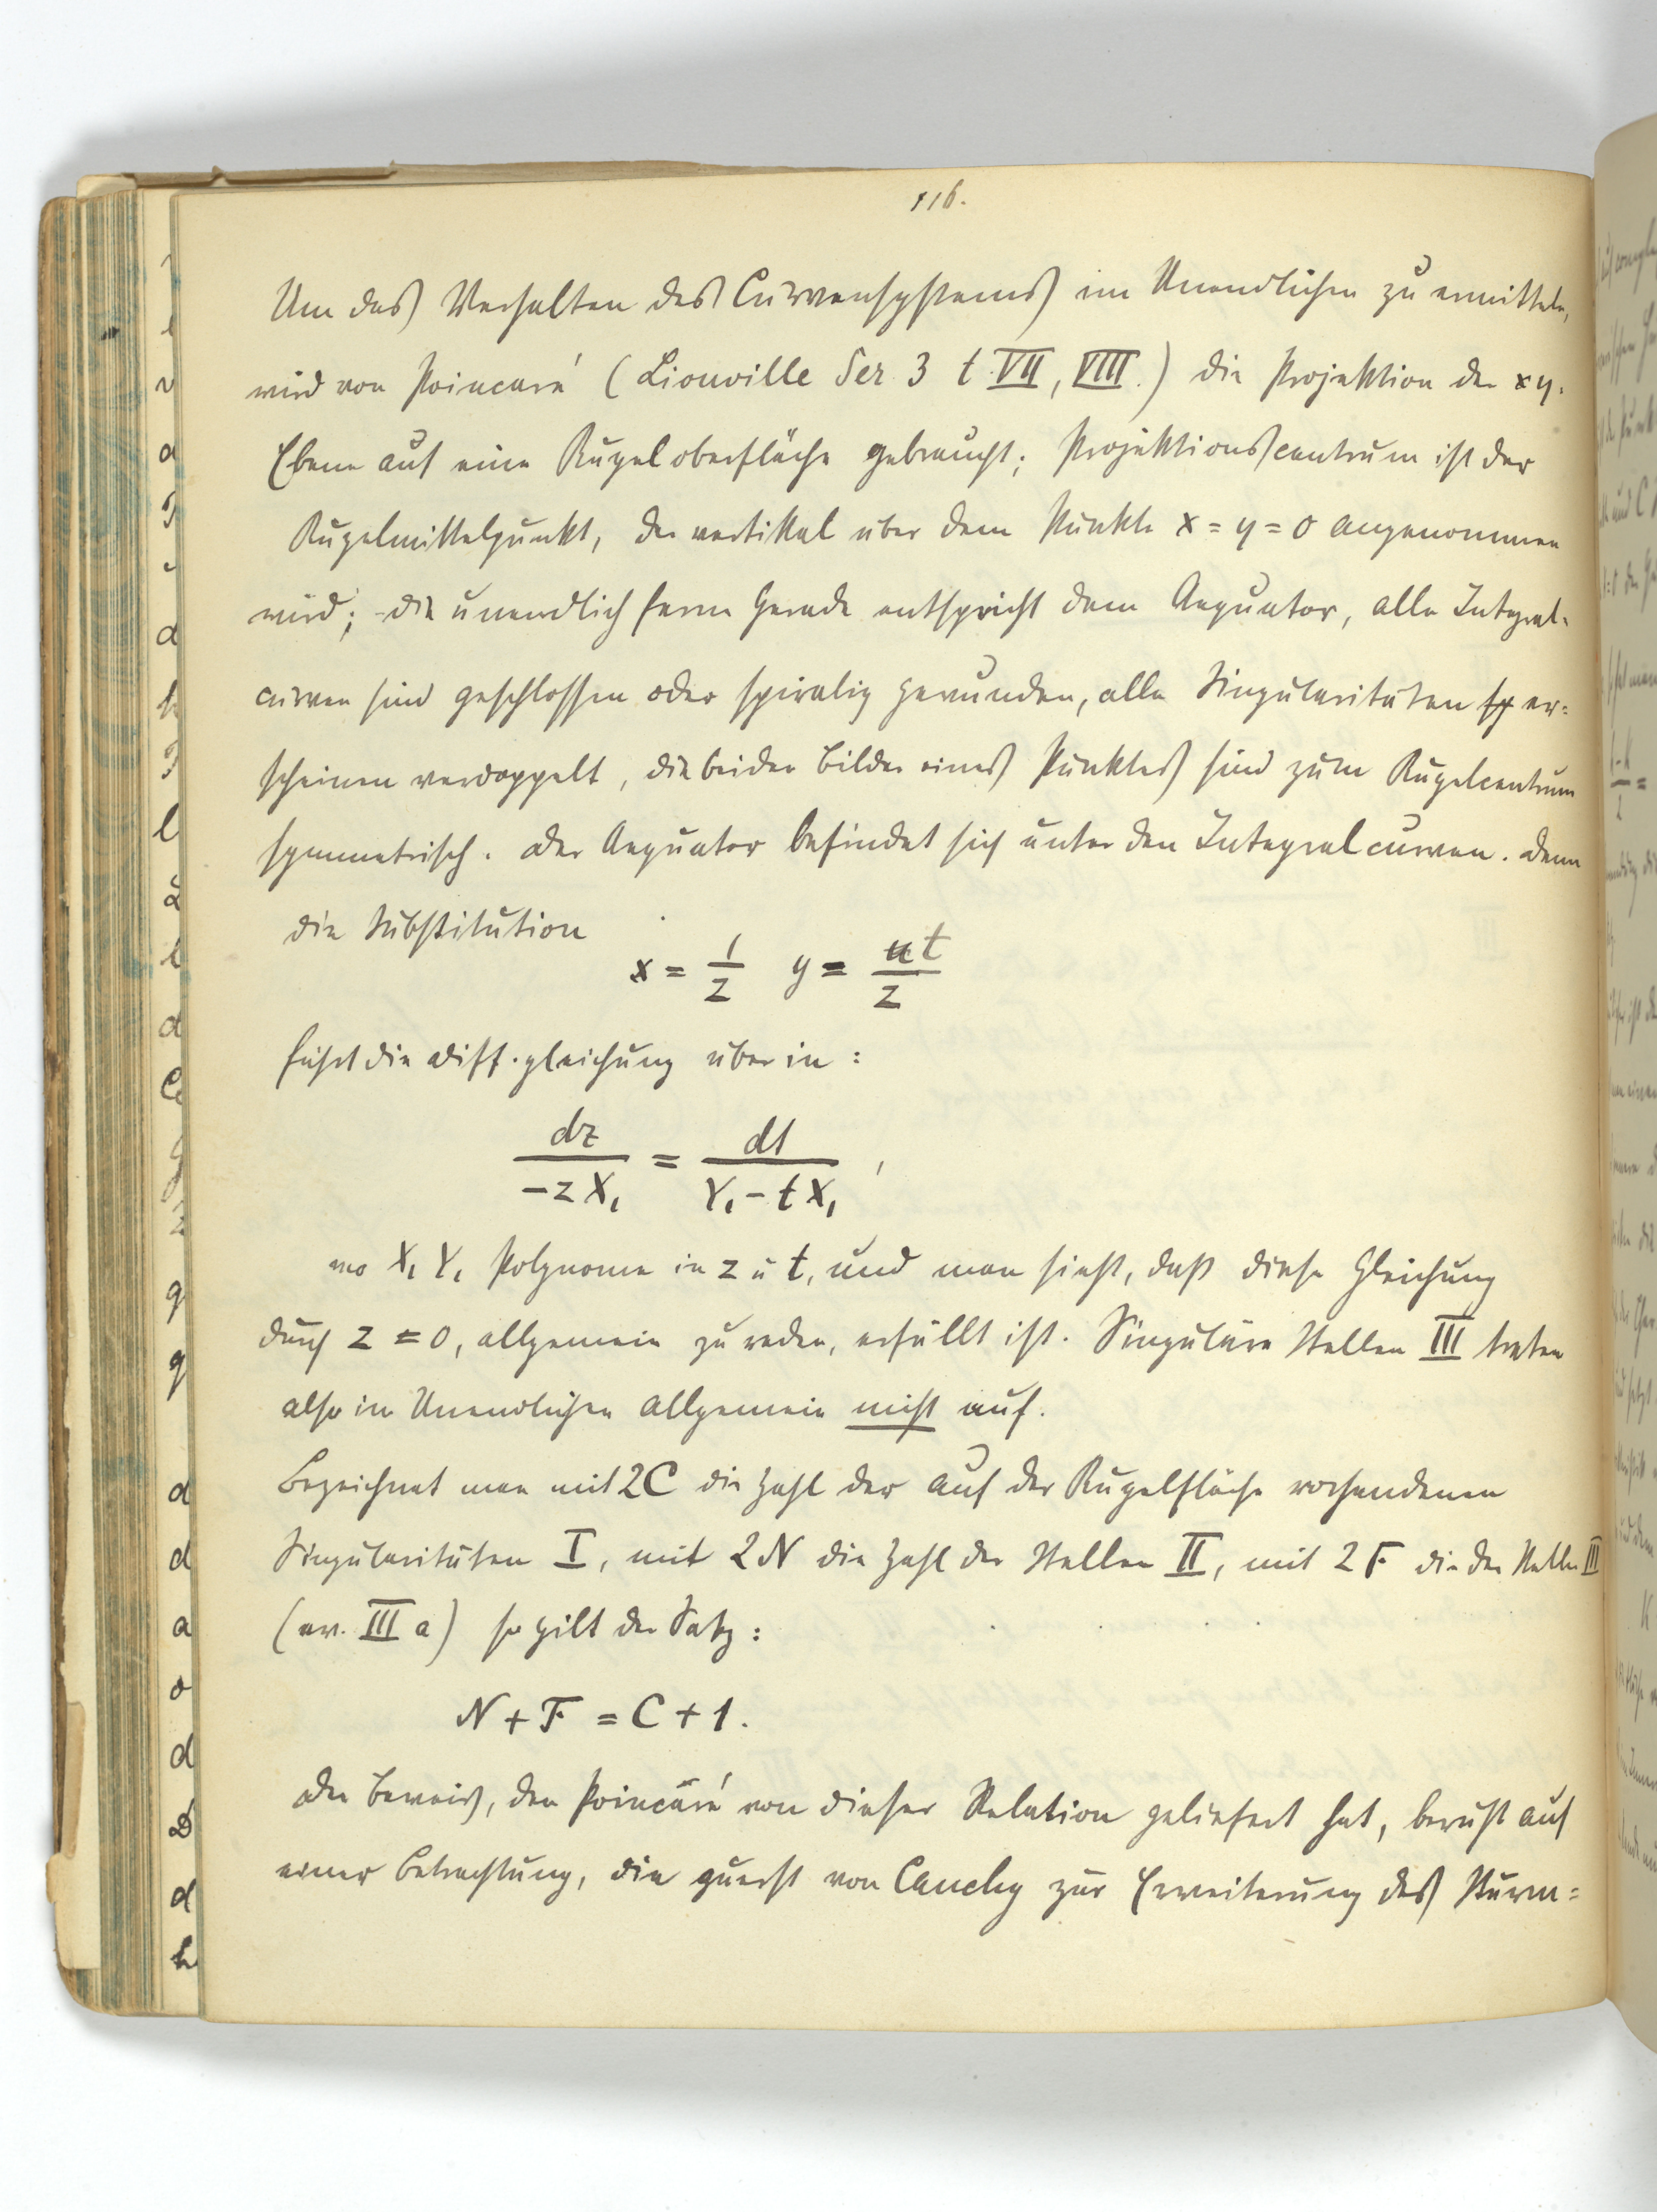 116.
Um das Verhalten des Curvensystems im Unendlichen zu ermitteln,
wird von Poincaré (Liouville Ser 3 t. VII, VIII.) die Projektion der xy-
Ebene auf eine Kugeloberfläche gebraucht; Projektionscentrum ist der
Kugelmittelpunkt, der vertikal über dem Punkte x = y = 0 angenommen
wird; die unendlich ferne Gerade entspricht dem Aequator, alle Integral-
curven sind geschlossen oder spiralig gewunden, alle Singularitäten er=
scheinen verdoppelt, die beiden Bilder eines Punktes sind zum Kugelcentrum
symmetrisch. Der Aequator befindet sich unter den Integralcurven. Denn
die Substitution
x = 1/z y = t/z
führt die Diff.gleichung über in:
dz/(-zX₁) = dt/(Y₁ - tX₁),
wo X₁ Y₁ Polynome in z u t, und man sieht, daß diese Gleichung
durch z = 0, allgemein zu reden, erfüllt ist. Singuläre Stellen III treten
also im Unendlichen allgemein nicht auf.
Bezeichnet man mit 2C die Zahl der auf der Kugelfläche vorhandenen
Singularitäten I, mit 2N die Zahl der Stellen II, mit 2F die der Stellen III
(ev. III a) so gilt der Satz:
N + F = C + 1.
Der Beweis, den Poincaré von dieser Relation geliefert hat, beruht auf
einer Betrachtung, die zuerst von Cauchy zur Erweiterung des Sturm=